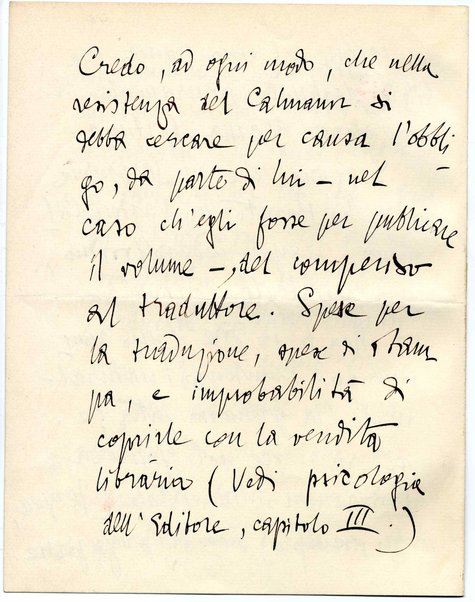 Credo, ad ogni modo, che nella
resistenza del Calmann si
debba cercare per causa l'obbli
go, da parte di lui – nel
caso ch'egli fosse per publicare
il volume –, del compenso
al traduttore. Spese per
la traduzione, spese di stam
pa, e improbabilità di
coprirle con la vendita
libraria (Vedi psicologia
dell'Editore, capitolo III.)